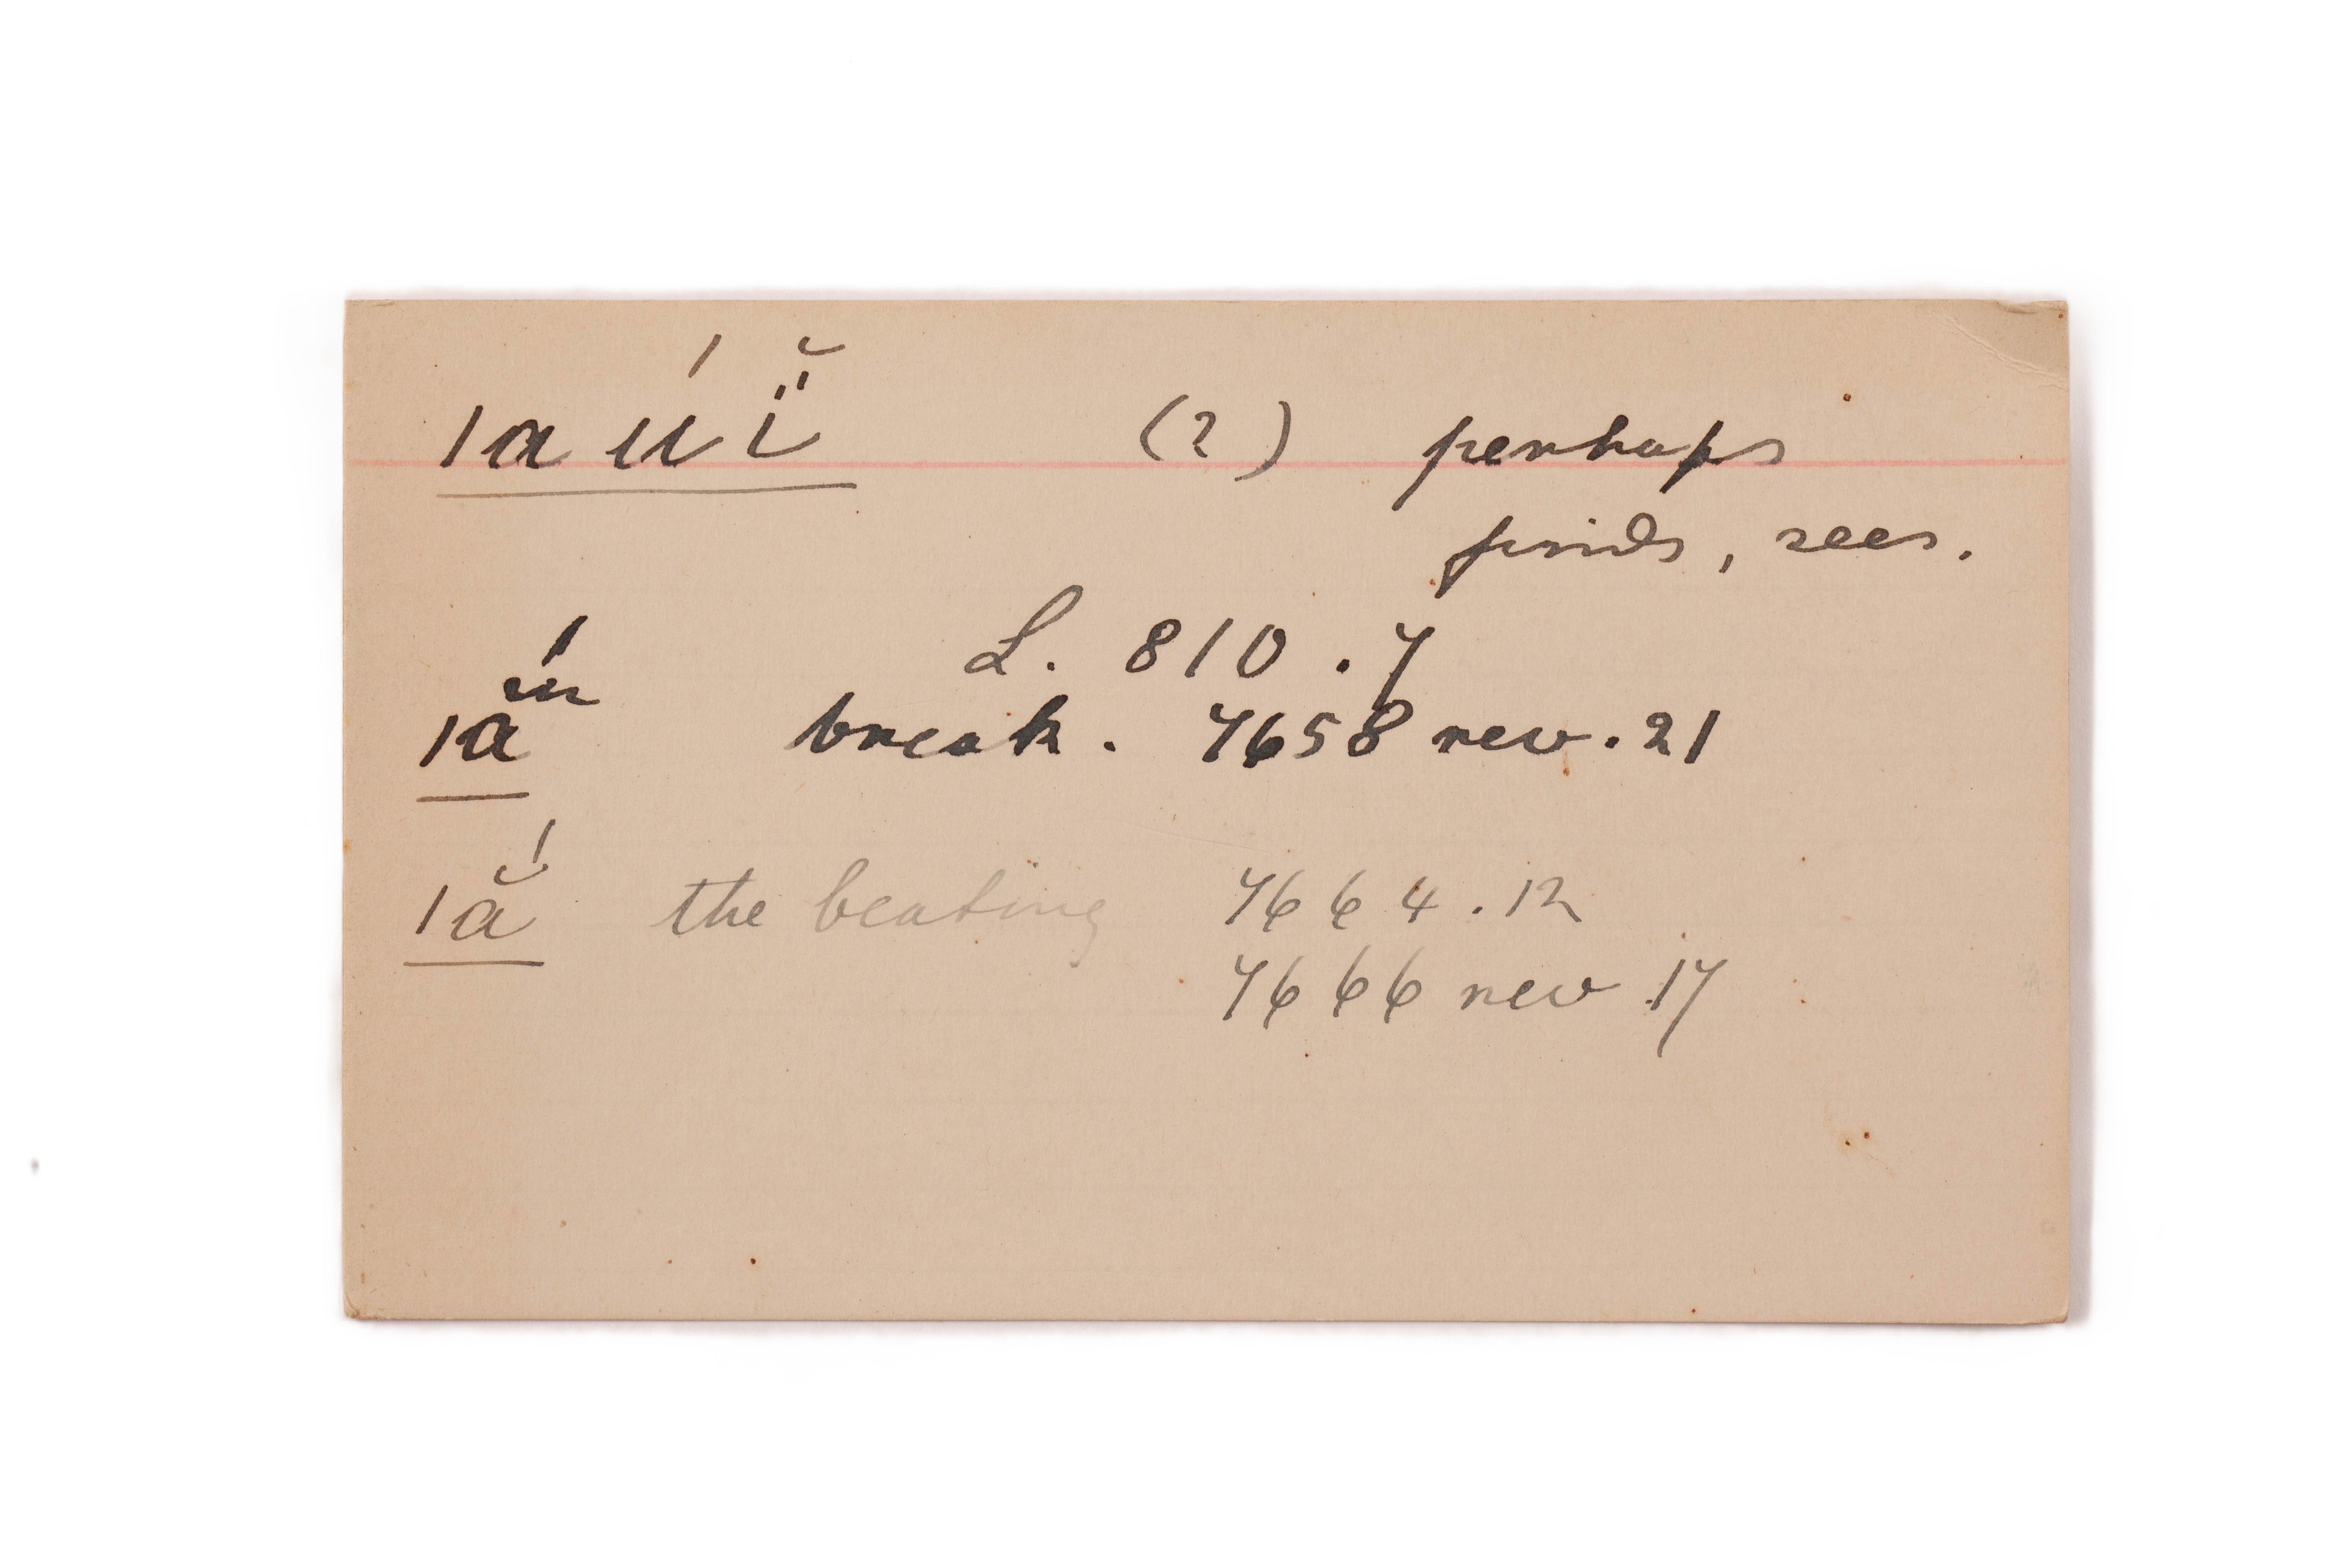 ǀa úï̆ (?) perhaps
finds, sees.
L. 810.7
ǀã́ break. 7658 rev. 21
ǀắ the beating 7664.12
7666 rev .17